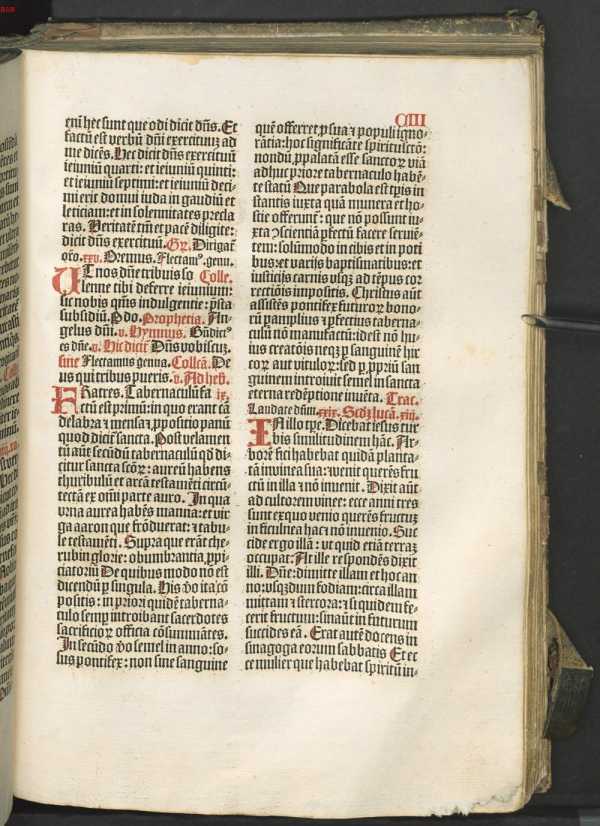 CIII
enī hec sunt que odi dicit dñs. Et
factū est verbū dñi exercituū ad
me dicēs. Hec dicit dñs exercituū
ieiuniū quarti: et ieiuniū quinti:
et ieiuniū septimi: et ieiuniū deci-
mi erit domui iuda in gaudiū et
leticiam: et in solennitates precla
ras. Veritatē tm̄ et pacē diligite:
dicit dñs exercituū. Gr̄. Dirigat᷒
or̄o. xxv. Oremus. Flectam᷒. genu.
UT nos dñe tribuis so Colle.
lenne tibi deferre ieiunium:
sic nobis qm̄s indulgentie: p̄sta
subsidiū. P do. Prophetia. An-
gelus dñi. v. Hymnus. Bñdict᷒
es dñe. v. Hic dicit᷑ Dñs vobiscū.
sine Flectamus genua. Collcā. De
us qui tribus pueris. v. Ad heb̄.
FRatres. Tabernaculū fa ix.
ctū est primū: in quo erant cā
delabra ⁊ mensa ⁊ ꝓpositio panū
quod dicit᷑ sancta. Post velamen
tū aūt secūdū tabernaculū qd̓ di
citur sancta scōꝝ: aureū habens
thuribulū et arcā testamēti circū
tectā ex om̄i parte auro. In qua
vrna aurea habēs manna: et vir
ga aaron que frōduerat: ⁊ tabu-
le testamēti. Supra que erāt che-
rubin glorie: obumbrantia ꝓpi
ciatoriū De quibus modo nō est
dicendū ꝑ singula. His v̓o ita cō
positis: in priori quidē taberna-
culo semꝑ introibant sacerdotes
sacrificioꝝ officia cōsummātes.
In secūdo v̓o semel in anno: so-
lus pontifex: non sine sanguine
quē offerret ꝓ sua ⁊ populi igno-
rātia: hoc significāte spiritu sctō:
nondū ꝓpalatā esse sanctoꝝ viā
adhuc priore tabernaculo habē-
te statū Que parabola est tꝑis in
stantis iuxta quā munera et ho-
stie offerunt᷑: que nō possunt iu-
xta ꝯscientiā ꝑfectū facere seruiē-
tem: solūmodo in cibis et in poti
bus: et varijs baptismatibus: et
iusticijs carnis vsqꝫ ad tēpus cor
rectiōis impositis. Christus aūt
assistēs pontifex futuroꝝ bono-
rū ꝑ amplius ⁊ ꝑfectius taberna-
culū nō manufactū: id est nō hu-
ius creatōis neqꝫ ꝑ sanguinē hir
coꝝ aut vituloꝝ: sed ꝑ ꝓpriū san
guinem introiuit semel in sancta
eterna redēptione inuēta. Trac.
Laudate dñm. xxix. Scd̓ꝫ lucā. xiij.
IN illo tꝑe. Dicebat iesus tur
bis similitudinem hāc. Ar-
borē fici habebat quidā planta-
tā in vinea sua: ⁊ venit querēs fru
ctū in illa ⁊ nō inuenit. Dixit aūt
ad cultorem vinee: ecce anni tres
sunt ex quo venio querēs fructuꝫ
in ficulnea hac: ⁊ nō inuenio. Suc
cide ergo illā: vt quid etiā terraꝫ
occupat᷑ At ille respondēs dixit
illi. Dñe: dimitte illam et hoc an
no: vsqꝫ dum fodiam: circa illam
mittam ⁊ stercora: ⁊ si quidem fe-
cerit fructum: sin aūt in futurum
succides eā. Erat autē docens in
sinagoga eorum sabbatis Et ec
ce mulier que habebat spiritū in-